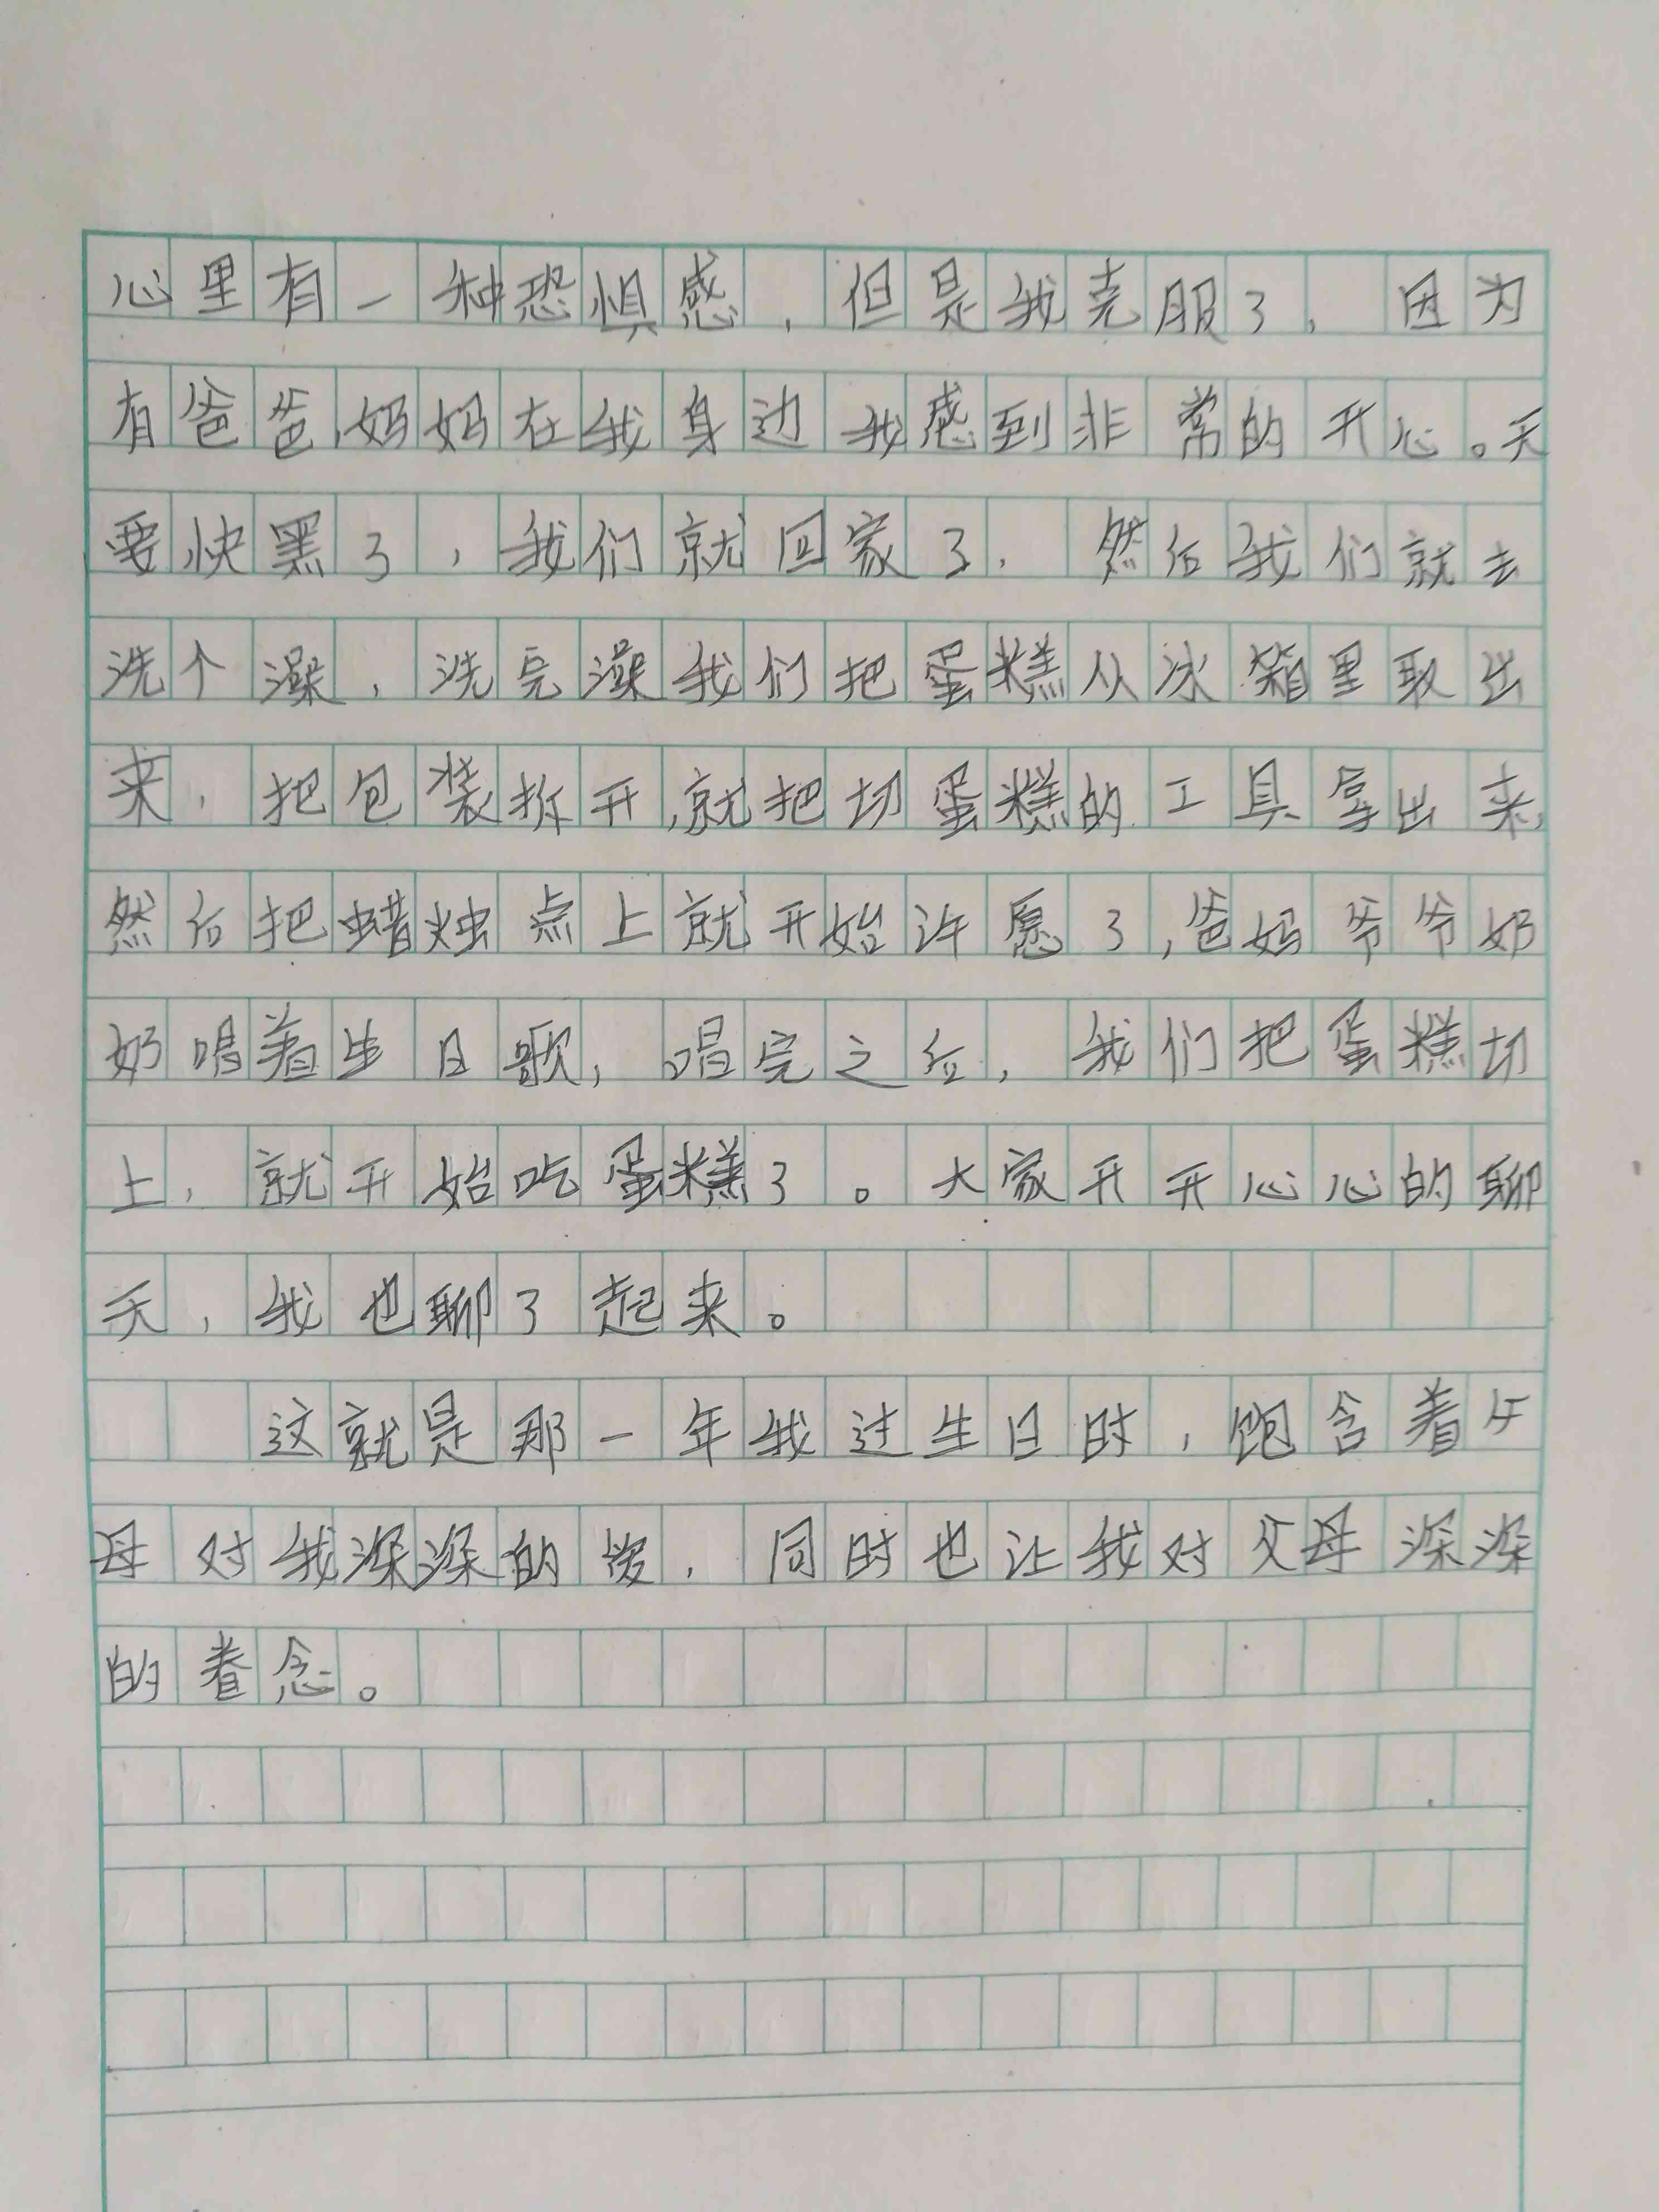 心里有一种恐惧感，但是我克服了，因为
有爸爸妈妈在我身边我感到非常的开心。天
要快黑了，我们就回家了，然后我们就去
洗个澡，洗完澡我们把蛋糕从冰箱里取出
来，把包装拆开，就把切蛋糕的工具拿出来，
然后把蜡烛点上就开始许愿了，爸妈爷爷奶
奶唱着生日歌，唱完之后，我们把蛋糕切
上，就开始吃蛋糕了。大家开开心心的聊
天，我也聊了起来。
这就是那一年我过生日时，饱含着
母对我深深的，同时也让我对父母深深
的眷念。